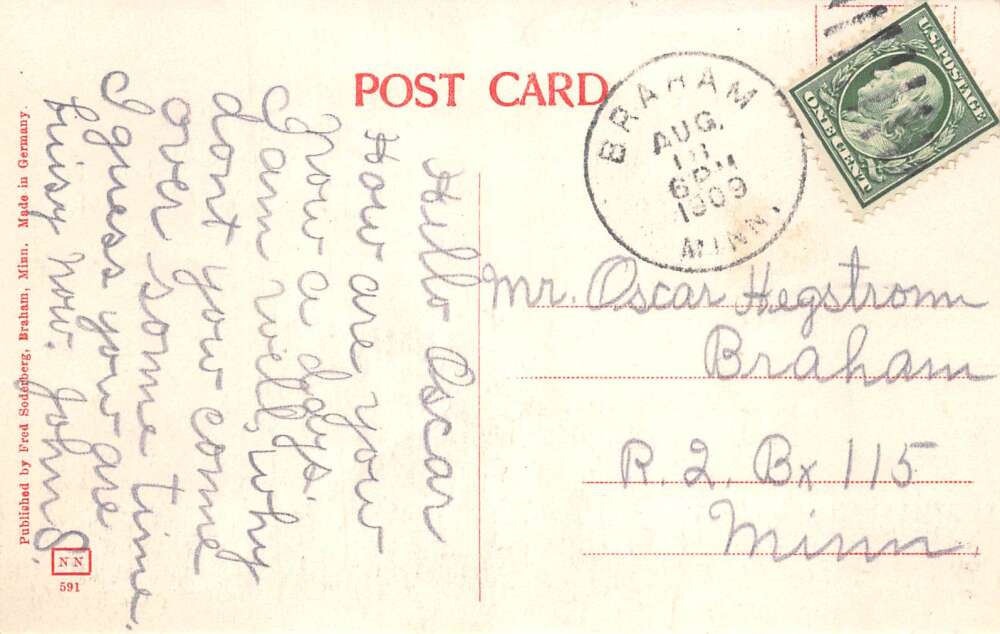 POST CARD
Hello Oscar
How are you
now a days.
I am well, why
dont you come
over some time.
I guess you are
buisy now. John S.
BRAHAM
AUG.
18
6 PM
1909
MINN.
U.S. POSTAGE
ONE CENT
Mr. Oscar Hegstrom
Braham
R. 2. Bx 115
Minn.
Published by Fred Soderberg, Braham, Minn. Made in Germany.
NN
591